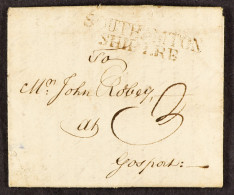 SOUTHAMTON
SHIP LRE
To
Mr John Robey
At 3
Gosport